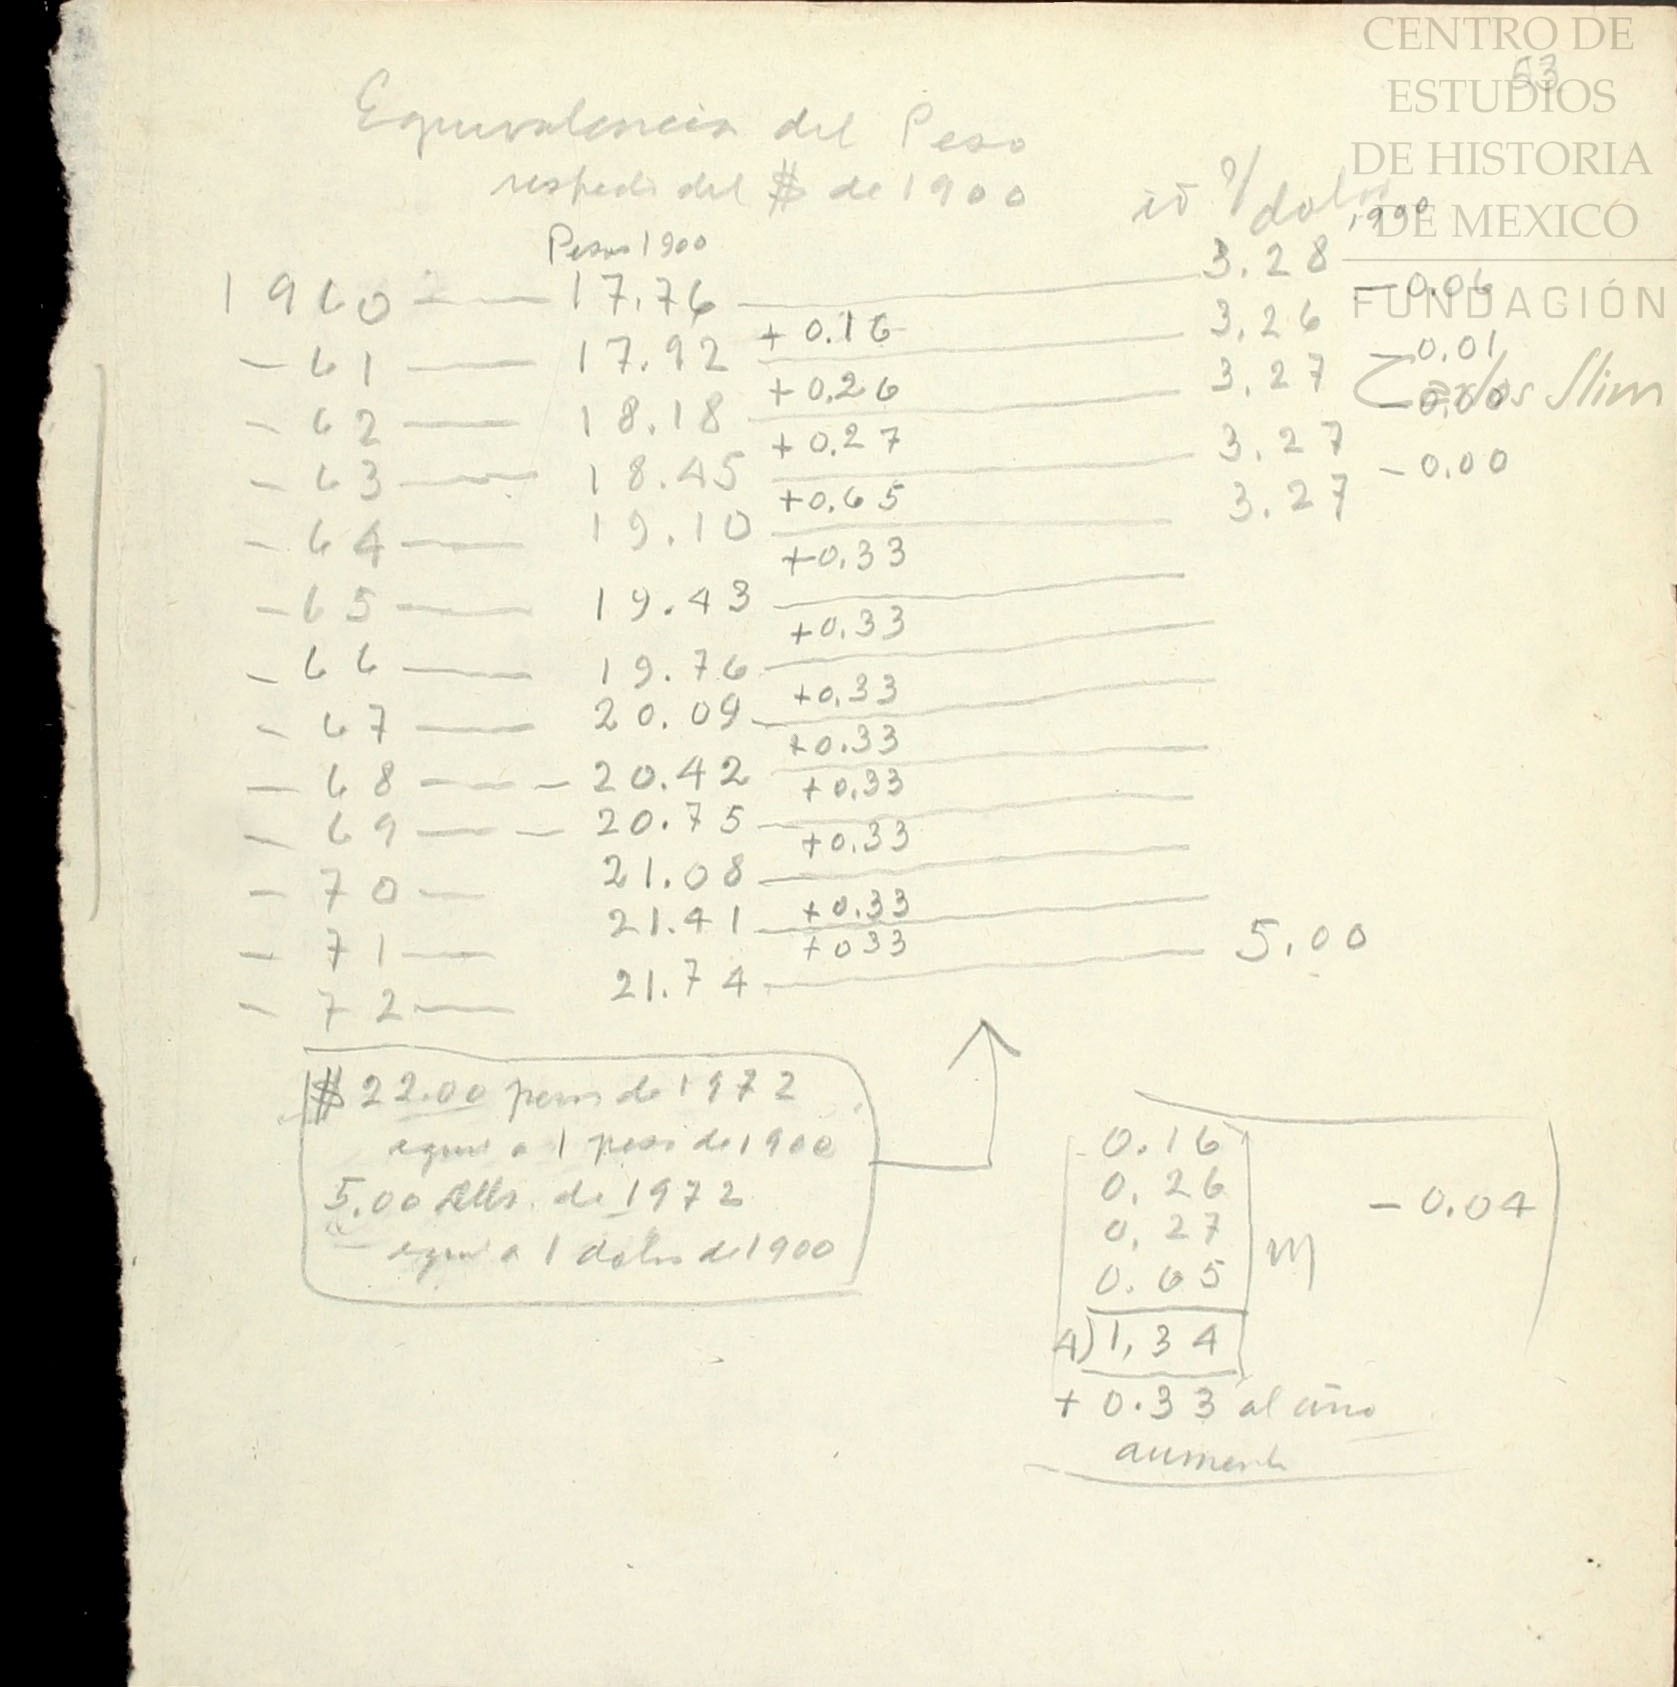 CENTRO DE
ESTUDIOS
DE HISTORIA
DE MEXICO
FUNDACIÓN
Carlos Slim
63
Equivalencia del Peso
respecto del $ de 1900
id p/ dolar 1900
Pesos 1900
1960 — 17.76 — 3.28
+ 0.16 - 0.06
- 61 — 17.92 — 3.26
+ 0.26 - 0.01
- 62 — 18.18 — 3.27
+ 0.27 - 0.00
- 63 — 18.45 — 3.27
+0.65 - 0.00
- 64 — 19.10 — 3.27
+0.33
- 65 — 19.43 —
+0.33
- 66 — 19.76 —
+0.33
- 67 — 20.09 —
+0.33
- 68 — 20.42 —
+0.33
- 69 — 20.75 —
+0.33
- 70 — 21.08 —
+0.33
- 71 — 21.41 —
+033
- 72 — 21.74 — 5.00
$ 22.00 pesos de 1972
equi a 1 peso de 1900
5.00 dlls. de 1972
equi a 1 dolar de 1900
0.16
0.26
0.27
0.65
4) 1,34
+ 0.33 al año
aumento
- 0.04